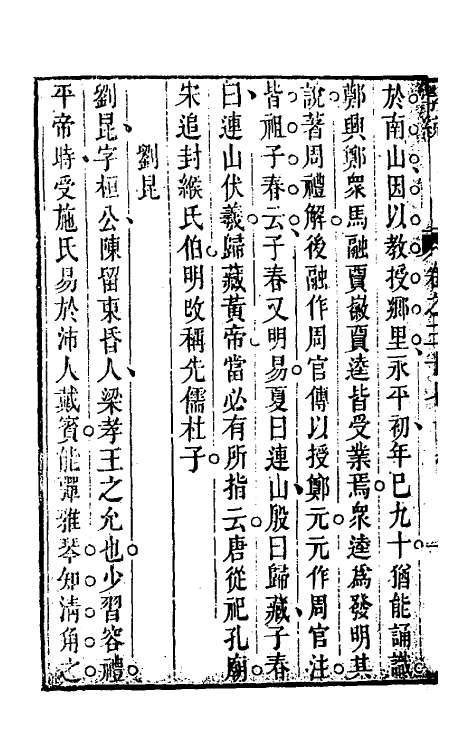 於南山因以教授鄉里永平初年已九十猶能誦識
鄭興鄭衆馬融賈徽賈逵皆受業焉衆逵爲發明其
說著周禮解後融作周官傳以授鄭元元作周官注
皆祖子春云子春又明易夏曰連山殷曰歸藏子春
曰連山伏羲歸藏黃帝當必有所指云唐從祀孔廟
宋追封緱氏伯明改稱先儒杜子
劉昆
劉昆字桓公陳留東昏人梁孝王之允也少習容禮
平帝時受施氏易於沛人戴賓能彈雅琴知清角之